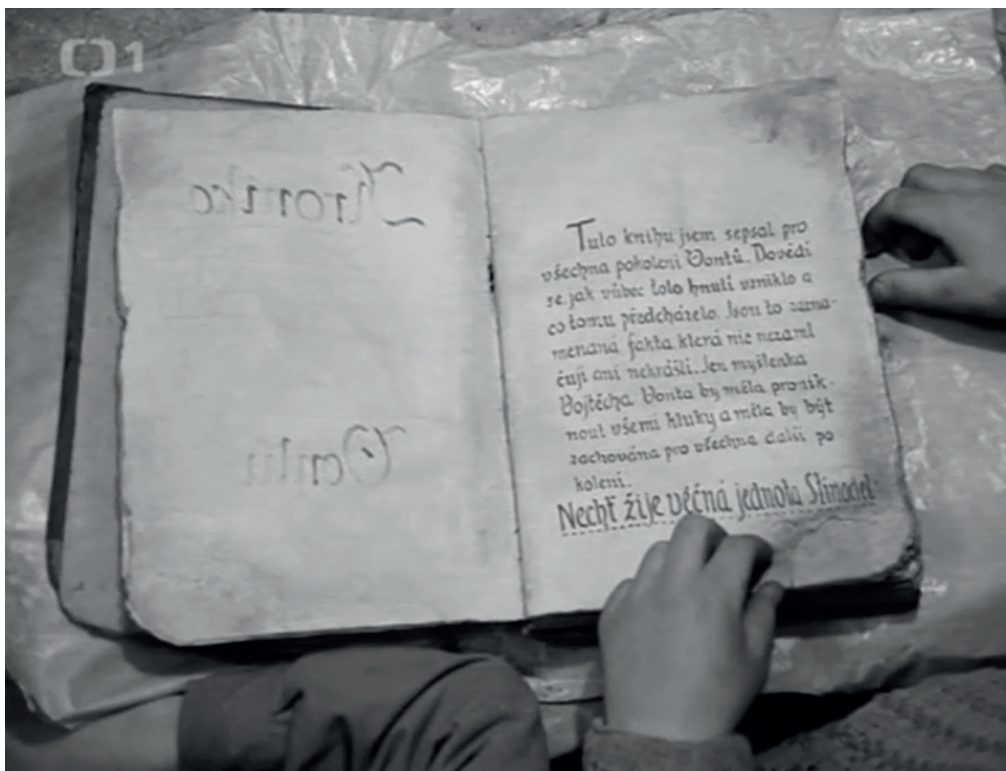 1
Kronika
Vontů
Tuto knihu jsem sepsal pro
všechna pokolení Vontů. Dovědí
se, jak vůbec toto hnutí vzniklo a
co tomu předcházelo. Jsou to zazna-
menaná fakta která nic nezavel
čují ani nekrášlí. Jen myšlenka
Vojtěcha Vonta by měla pronik-
nout všemi kluky a měla by být
zachována pro všechna další po
kolení.
Nechť žije věčná jednota Stínadel